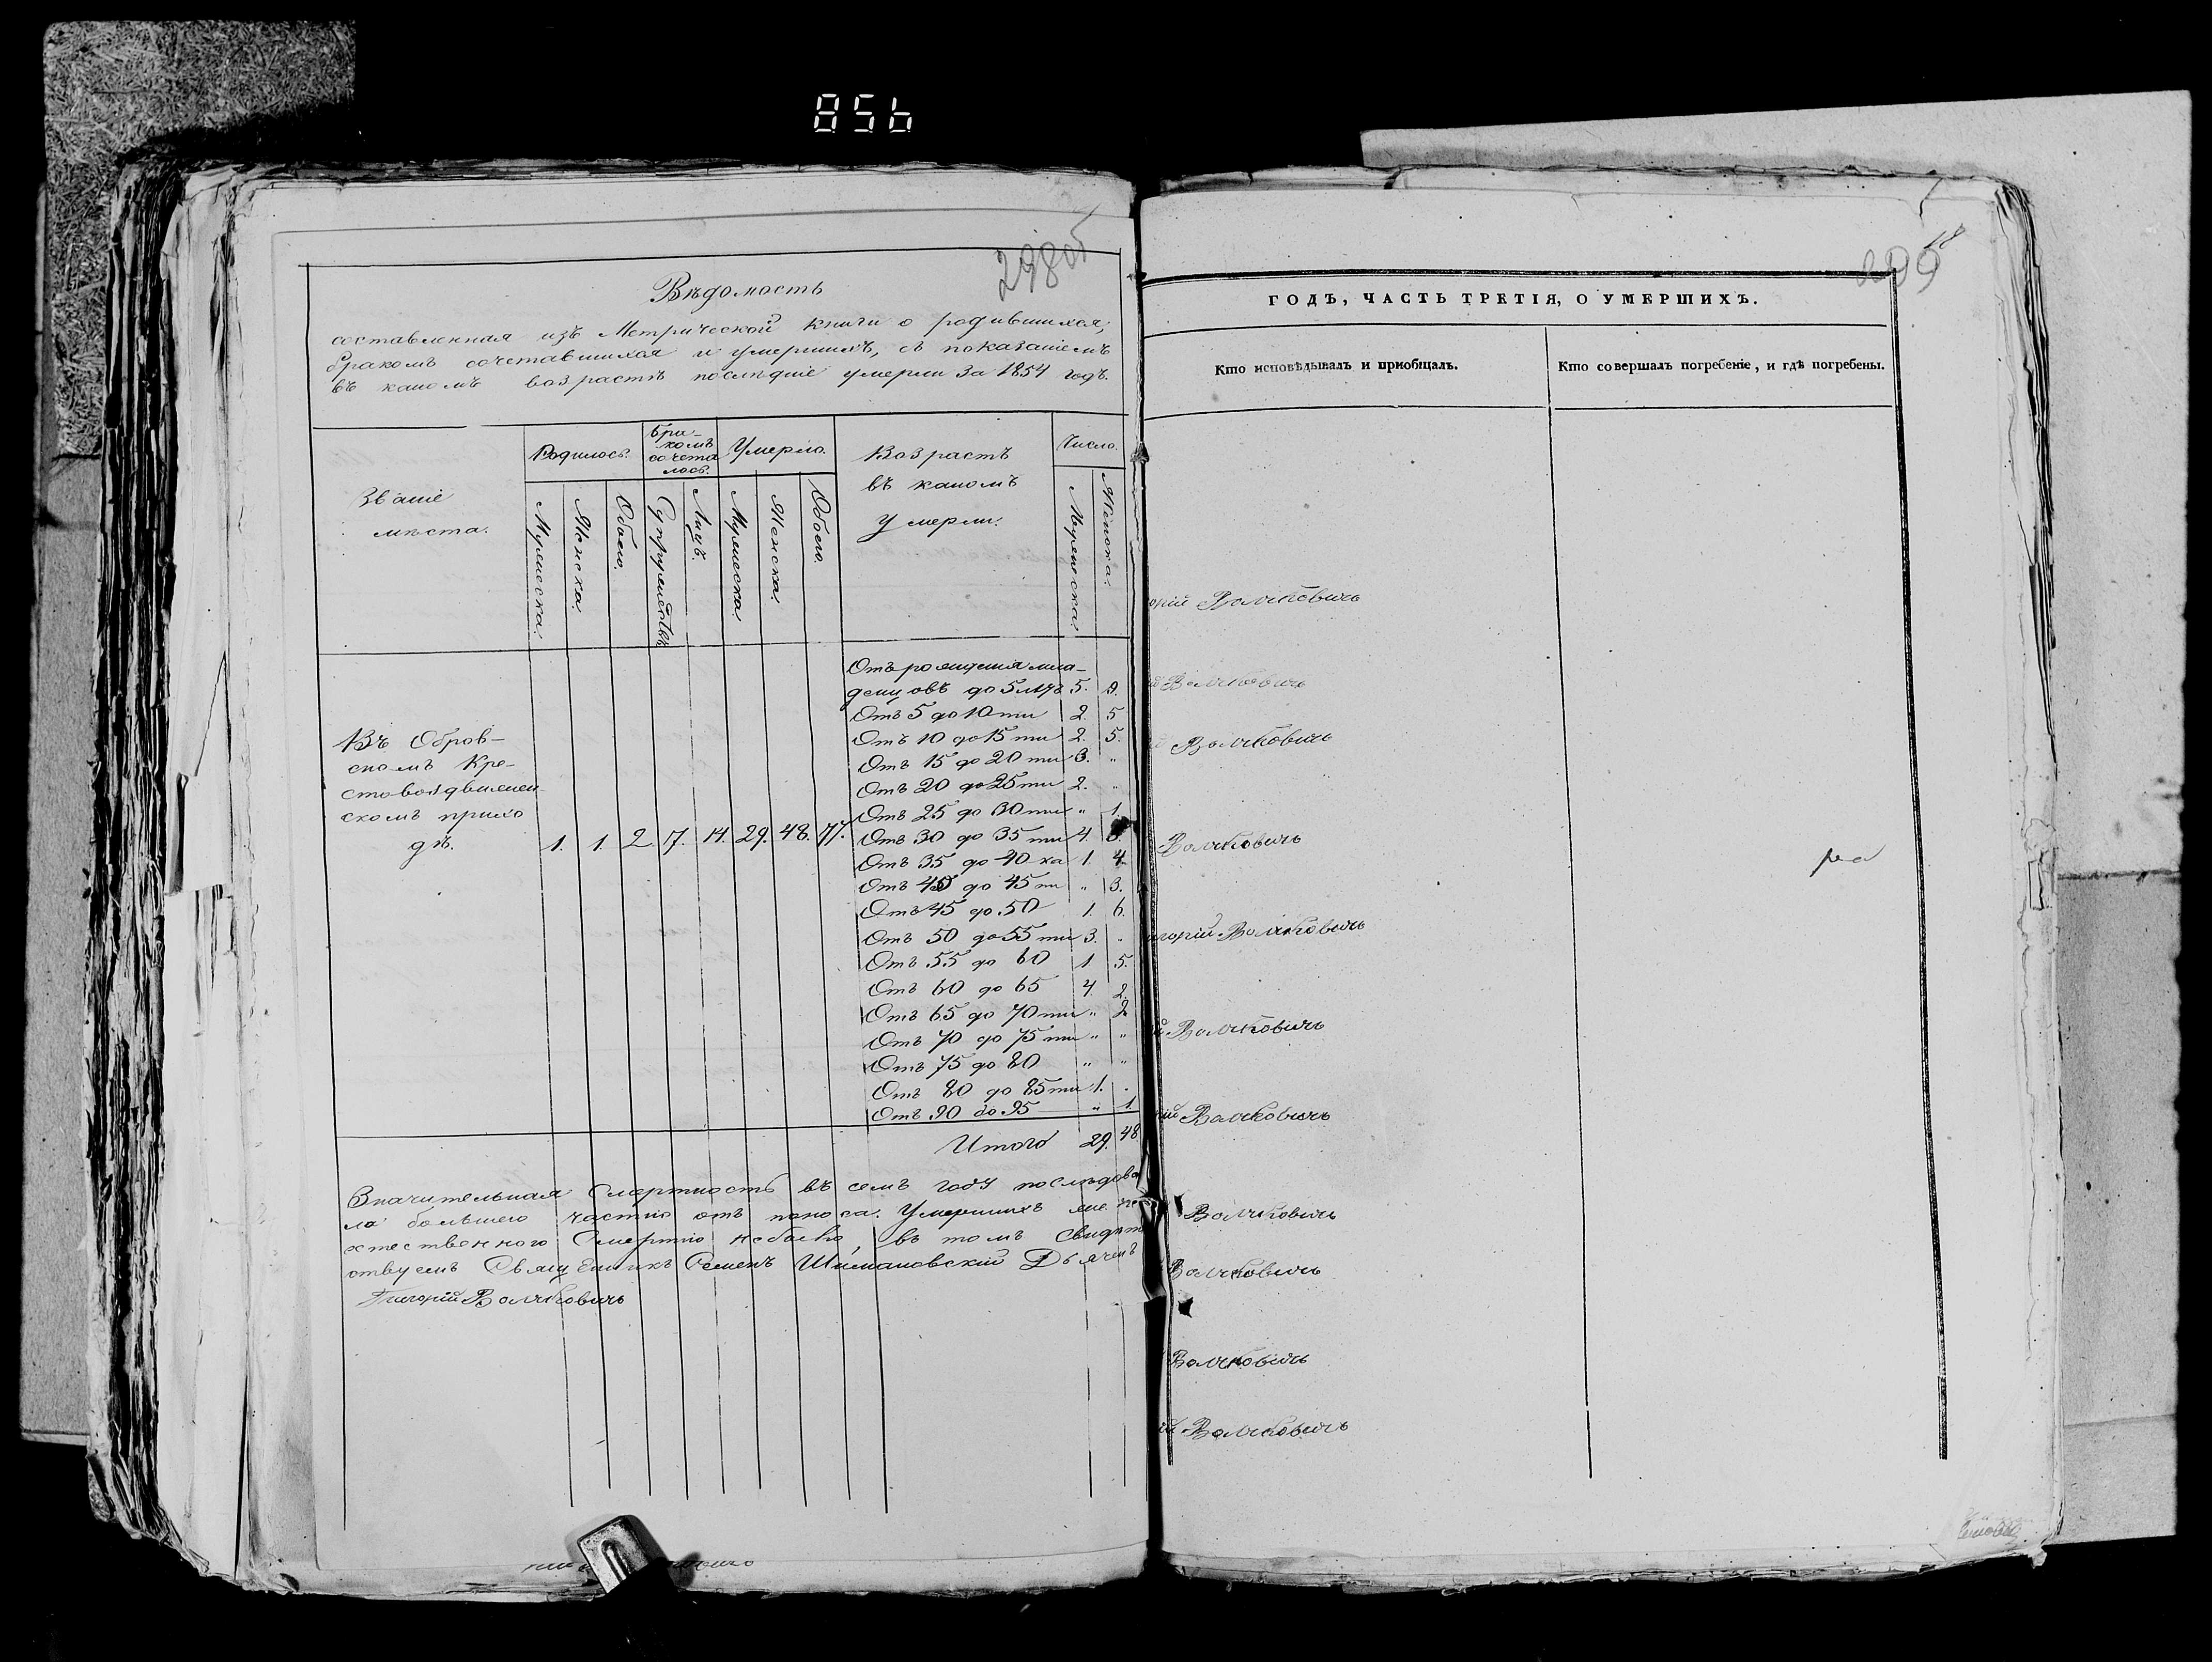 856
298об
Вѣдомость
составленная изъ Метрической книги о родившихся,
бракомъ сочетавшихся и умершихъ, съ показаніемъ
въ какомъ возрастѣ послѣдніе умерли за 1854 годъ.
Званіе
мѣста.
Родилось.
Бра-
комъ
сочета
лось.
Умерло.
Возрастъ
въ какомъ
умерли.
Число.
Мужеска.
Женска.
Обоего.
Супружествъ
Лицъ.
Мужеска.
Женска.
Обоего.
Мужеска.
Женска.
Въ Обров-
скомъ Кре-
стовоздвижен
скомъ прихо
дѣ. 1. 1. 2. 7. 14. 29. 48. 77.
Отъ рожденія мла-
денцовъ до 5 лѣтъ 5. 9.
Отъ 5 до 10ти 2. 5
Отъ 10 до 15 ти 2. 5.
Отъ 15 до 20 ти 3. "
Отъ 20 до 25 ти 2. "
Отъ 25 до 30 ти " 1.
Отъ 30 до 35 ти 4.
Отъ 35 до 40 ка 1. 4
Отъ 40 до 45 ти " 3.
Отъ 45 до 50 1. 6.
Отъ 50 до 55 ти 3. "
Отъ 55 до 60 1 5.
Отъ 60 до 65 4 2.
Отъ 65 до 70 ти " 2
Отъ 70 до 75 ти " "
Отъ 75 до 80 " "
Отъ 80 до 85 ти 1. "
Отъ 90 до 95 " 1.
Итого 29. 48
Значительная Смертность въ семъ году послѣдова
ла большею частію отъ поноса. Умершихъ же
естественного Смертію небыло, въ томъ Свидѣт
ствуемъ Священникъ Семенъ Шимановскій Дьячекъ
Григорій Волчковичъ
ГОДЪ, ЧАСТЬ ТРЕТІЯ, О УМЕРШИХЪ.
Кто исповѣдывалъ и пріобщалъ.
Кто совершалъ погребеніе, и гдѣ погребены.
орій Волчковичъ
й Волчковичъ
Волчковичъ
Волчковичъ
игорій Волчковичъ
й Волчковичъ
ій Волчковичъ
Волчковичъ
Волчковичъ
Волчковичъ
ій Волчковичъ